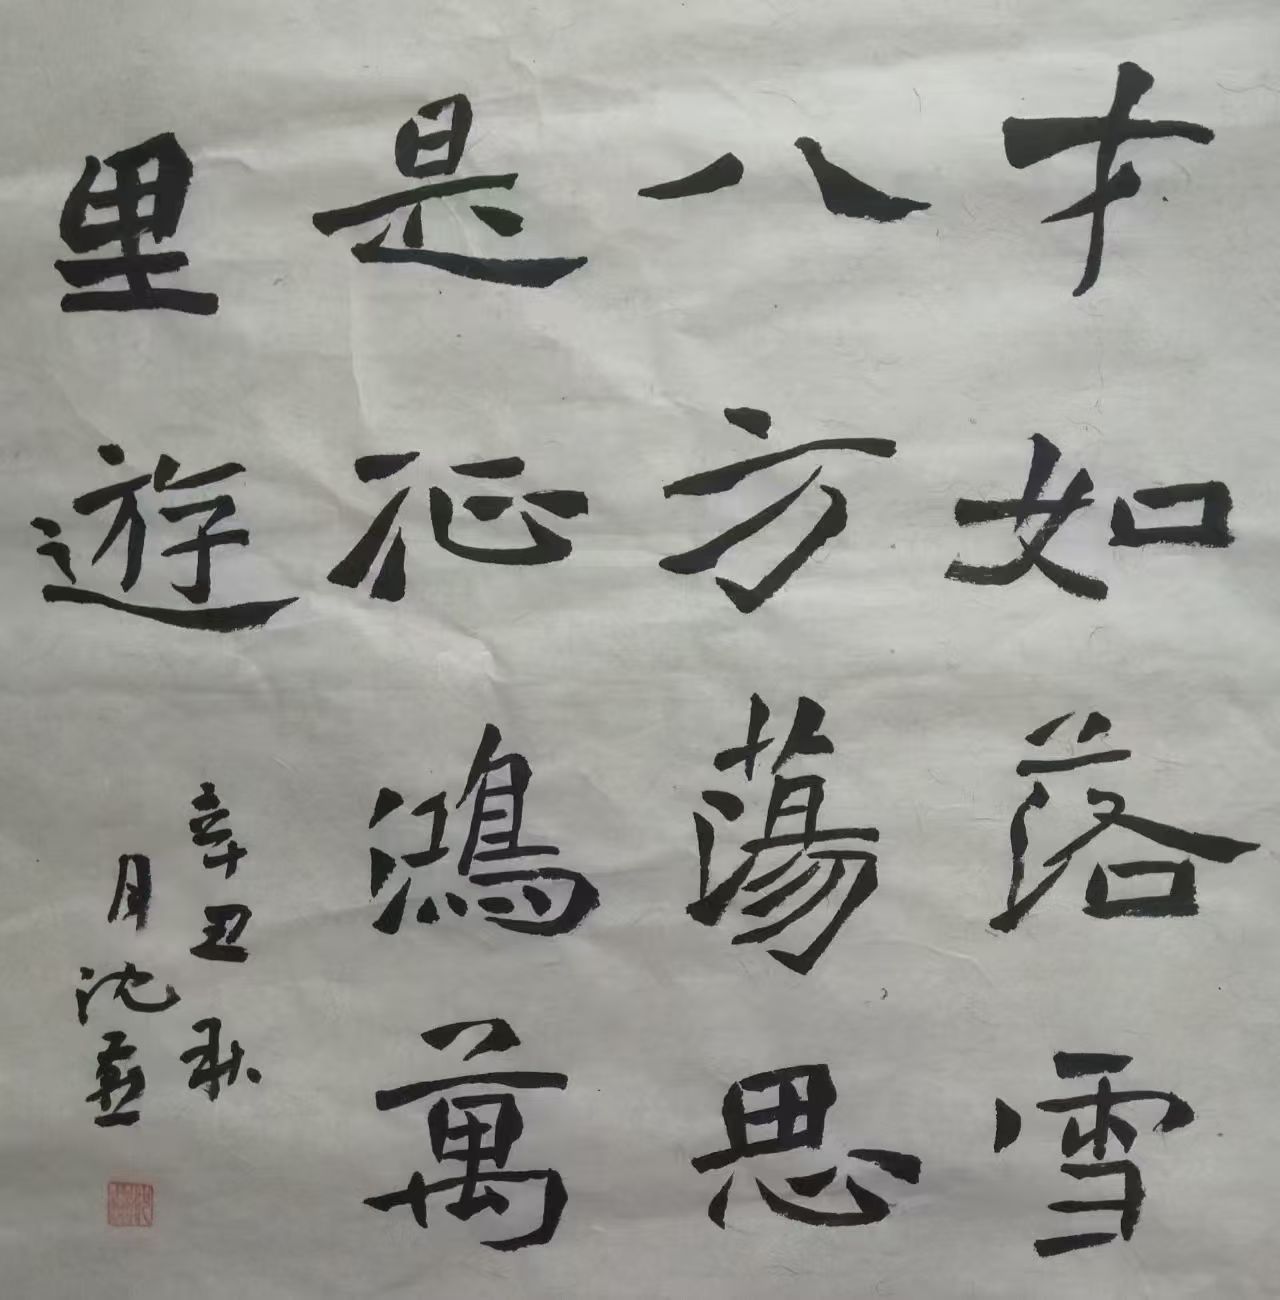 才如落雪
八方蕩思
是征鴻萬
里遊
辛丑秋
月沈燕